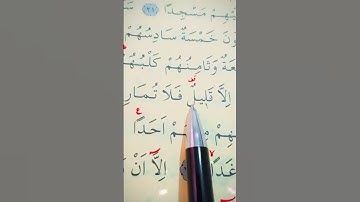 ـهِمْ مَسْجِدًا ﴿٢١﴾
ـونَ خَمْسَةٌ سَادِسُهُمْ
ـعَةٌ وَثَامِنُهُمْ كَلْبُهُمْ
اِلَّا قَلِيلٌ فَلَا تُمَارِ
اَحَدًا
غَدًا اِلَّا اَنْ